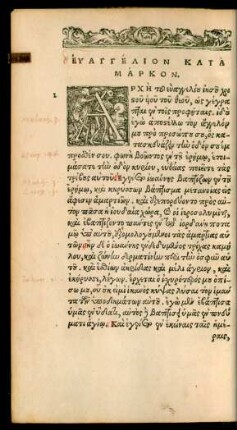 ΕΥΑΓΓΕΛΙΟΝ ΚΑΤΑ
ΜΑΡΚΟΝ.
1.
ΑΡΧΗ τοῦ εὐαγγελίου ἰησοῦ χρι
στοῦ ὑοῦ τοῦ θεοῦ, ὡς γέγρα
πται ἐν τοῖς προφήταις. ἰδοὺ
ἐγὼ ἀποστέλλω τὸν ἄγγελόν
μου πρὸ προσώπου σου, ὃς κα
τασκευάσει τὴν ὁδόν σου ἔμ
προσθέν σου. φωνὴ βοῶντος ἐν τῇ ἐρήμῳ, ἑτοι-
μάσατε τὴν ὁδὸν κυρίου, εὐθείας ποιεῖτε τὰς
τρίβους αὐτοῦ. ἐγένετο ἰωάννης βαπτίζων ἐν τῇ
ἐρήμῳ, καὶ κηρύσσων βάπτισμα μετανοίας εἰς
ἄφεσιν ἁμαρτιῶν. καὶ ἐξεπορεύετο πρὸς αὐ
τὸν πᾶσα ἡ ἰουδαία χώρα, καὶ οἱ ἱεροσολυμῖται,
καὶ ἐβαπτίζοντο πάντες ἐν τῷ ἰορδάνῃ ποτα
μῷ ὑπ' αὐτοῦ, ἐξομολογούμενοι τὰς ἁμαρτίας αὑ
τῶν. ἦν δὲ ὁ ἰωάννης ἐνδεδυμένος τρίχας καμή
λου, καὶ ζώνην δερματίνην περὶ τὴν ὀσφῦν αὑ
τοῦ. καὶ ἐσθίων ἀκρίδας καὶ μέλι ἄγριον, καὶ
ἐκήρυσσε, λέγων. ἔρχεται ὁ ἰσχυρότερός μου ὀπί
σω μου, οὗ οὐκ εἰμὶ ἱκανὸς κύψας λῦσαι τὸν ἱμάν
τα τῶν ὑποδημάτων αὐτοῦ. ἐγὼ μὲν ἐβάπτισα
ὑμᾶς ἐν ὕδατι, αὐτὸς δὲ βαπτίσει ὑμᾶς ἐν πνεύ
ματι ἁγίῳ. Καὶ ἐγένετο ἐν ἐκείναις ταῖς ἡμέ-
ραις,